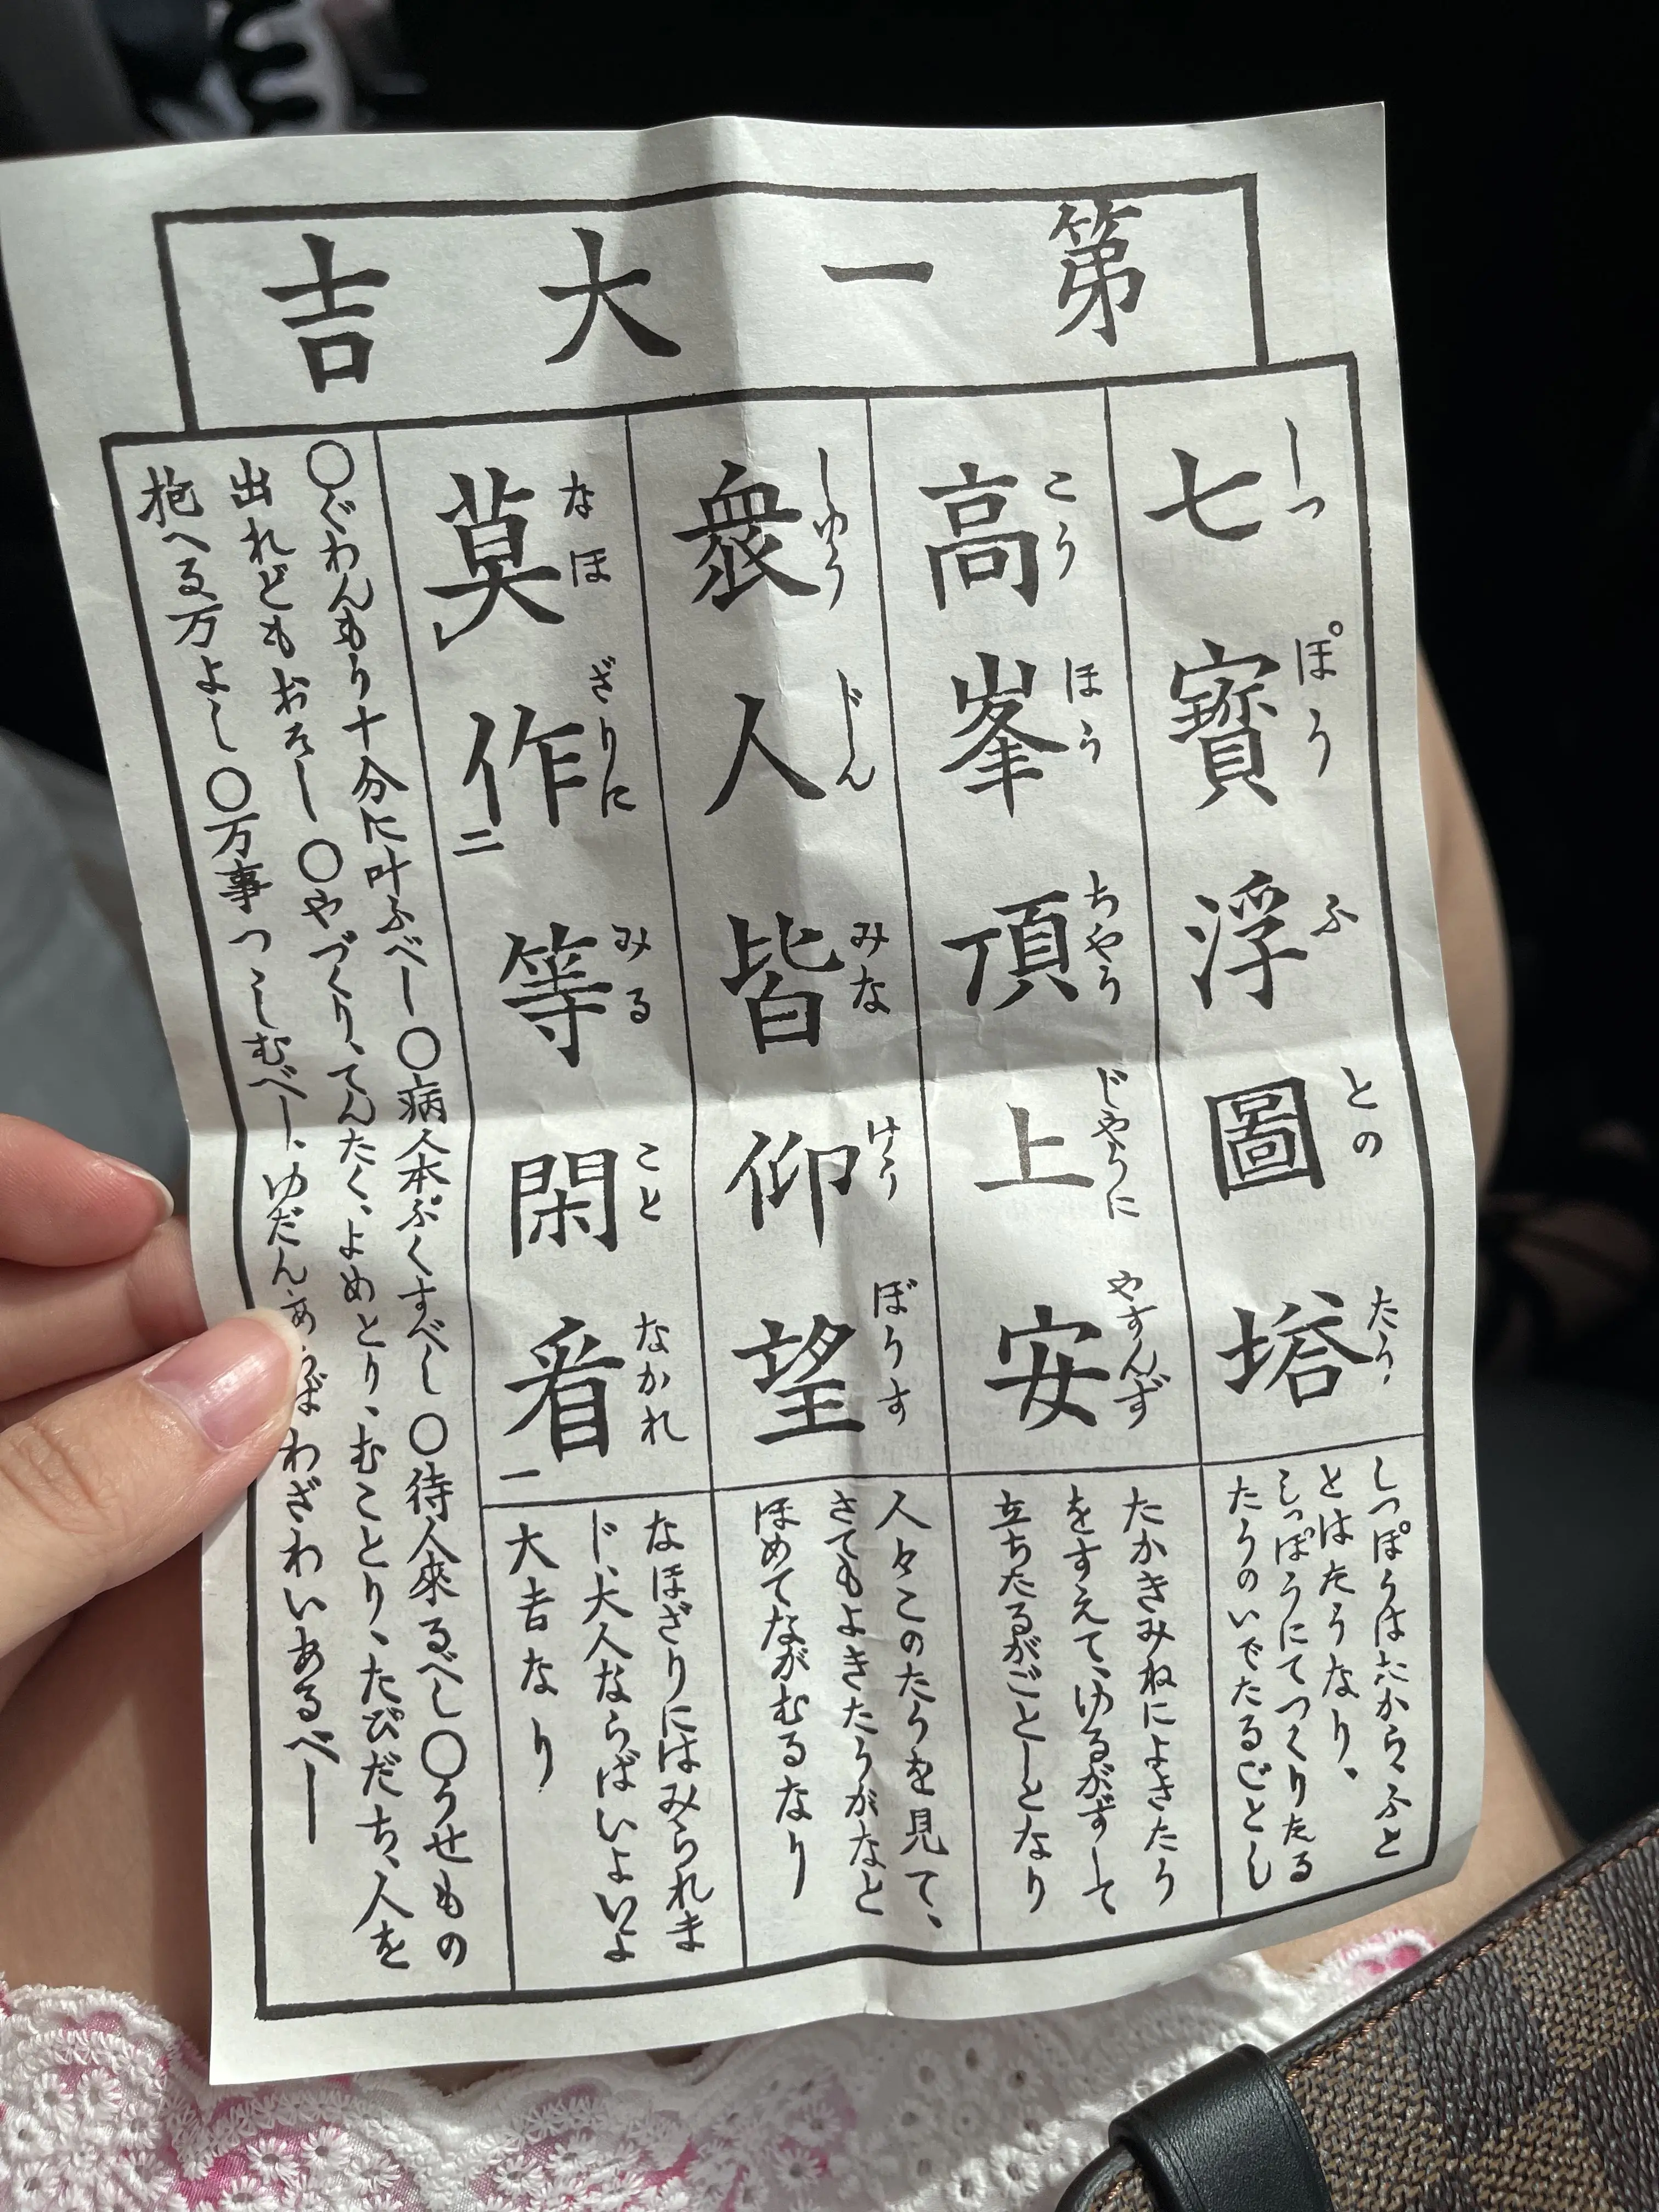 第一大吉
七寶浮圖塔
しつぽうふとのたう
しつぽうはたから、ふと
とはたうなり。
しつぽうにてつくりたる
たうのいでたるごとし
高峯頂上安
こうほうちやうじやうにやすんず
たかきみねによきたう
をすえて、ゆるがずして
立ちたるがごとしとなり
衆人皆仰望
しゆうじんみなけうぼうす
人々このたうを見て、
さてもよきたうがなと
ほめてながむるなり
莫作二等閑看一
なほざりにみることなかれ
なほざりにはみられま
じ、大人ならばいよいよ
大吉なり
〇ぐわんもう十分に叶ふべし〇病人本ぷくすべし〇待人來るべし〇うせもの
出れどもおそし〇やづくり、てんたく、よめとり、むことり、たびだち、人を
抱へる万よし〇万事つゝしむべし、ゆだんあらばわざわいあるべし